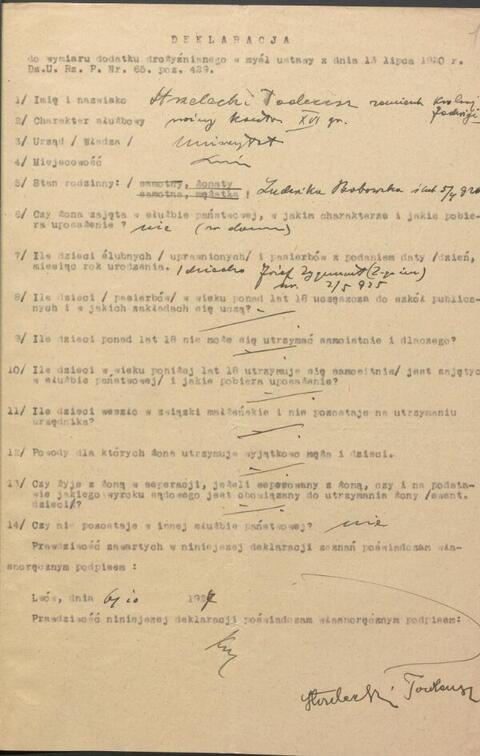 DEKLARACJA
do wymiaru dodatku drożyźnianego w myśl ustawy z dnia 13 lipca 1920 r.
Dz.U. Rz. P. Nr. 65. poz. 429.
1/ Imię i nazwisko Strzelecki Tadeusz
2/ Charakter służbowy woźny XVI gr.
3/ Urząd / Władza / Uniwersytet
4/ Miejscowość Lwów
5/ Stan rodzinny: / samotny, żonaty
samotna, mężatka / Ludwika Bobowska ślub
6/ Czy żona zajęta w służbie państwowej, w jakim charakterze i jakie pobie-
ra uposażenie ? nie (w domu)
7/ Ile dzieci ślubnych / uprawnionych/ i pasierbów z podaniem daty /dzień,
miesiąc rok urodzenia. 1 dziecko Józef Zygmunt
ur. 2/5 925
8/ Ile dzieci / pasierbów/ w wieku ponad lat 18 uczęszcza do szkół publicz-
nych i w jakich zakładach się uczą?
9/ Ile dzieci ponad lat 18 nie może się utrzymać samoistnie i dlaczego?
10/ Ile dzieci w wieku poniżej lat 18 utrzymuje się samoitnie/ jest zajętych
w służbie państwowej/ i jakie pobiera uposażenie?
11/ Ile dzieci weszło w związki małżeńskie i nie pozostaje na utrzymaniu
urzędnika?
12/ Powody dla których żona utrzymuje wyjątkowo męża i dzieci.
13/ Czy żyje z żoną w seperacji, jeżeli seperowany z żoną, czy i na podsta-
wie jakiego wyroku sądowego jest obowiązany do utrzymania żony /ewent.
dzieci/?
14/ Czy nie pozostaje w innej służbie państwowej? nie
Prawdziwość zawartych w niniejszej deklaracji zeznań poświadczam wła-
snoręcznym podpisem :
Lwów, dnia 6/10 1927
Prawdziwość niniejszej deklaracji poświadczam własnoręcznym podpisem:
Strzelecki Tadeusz